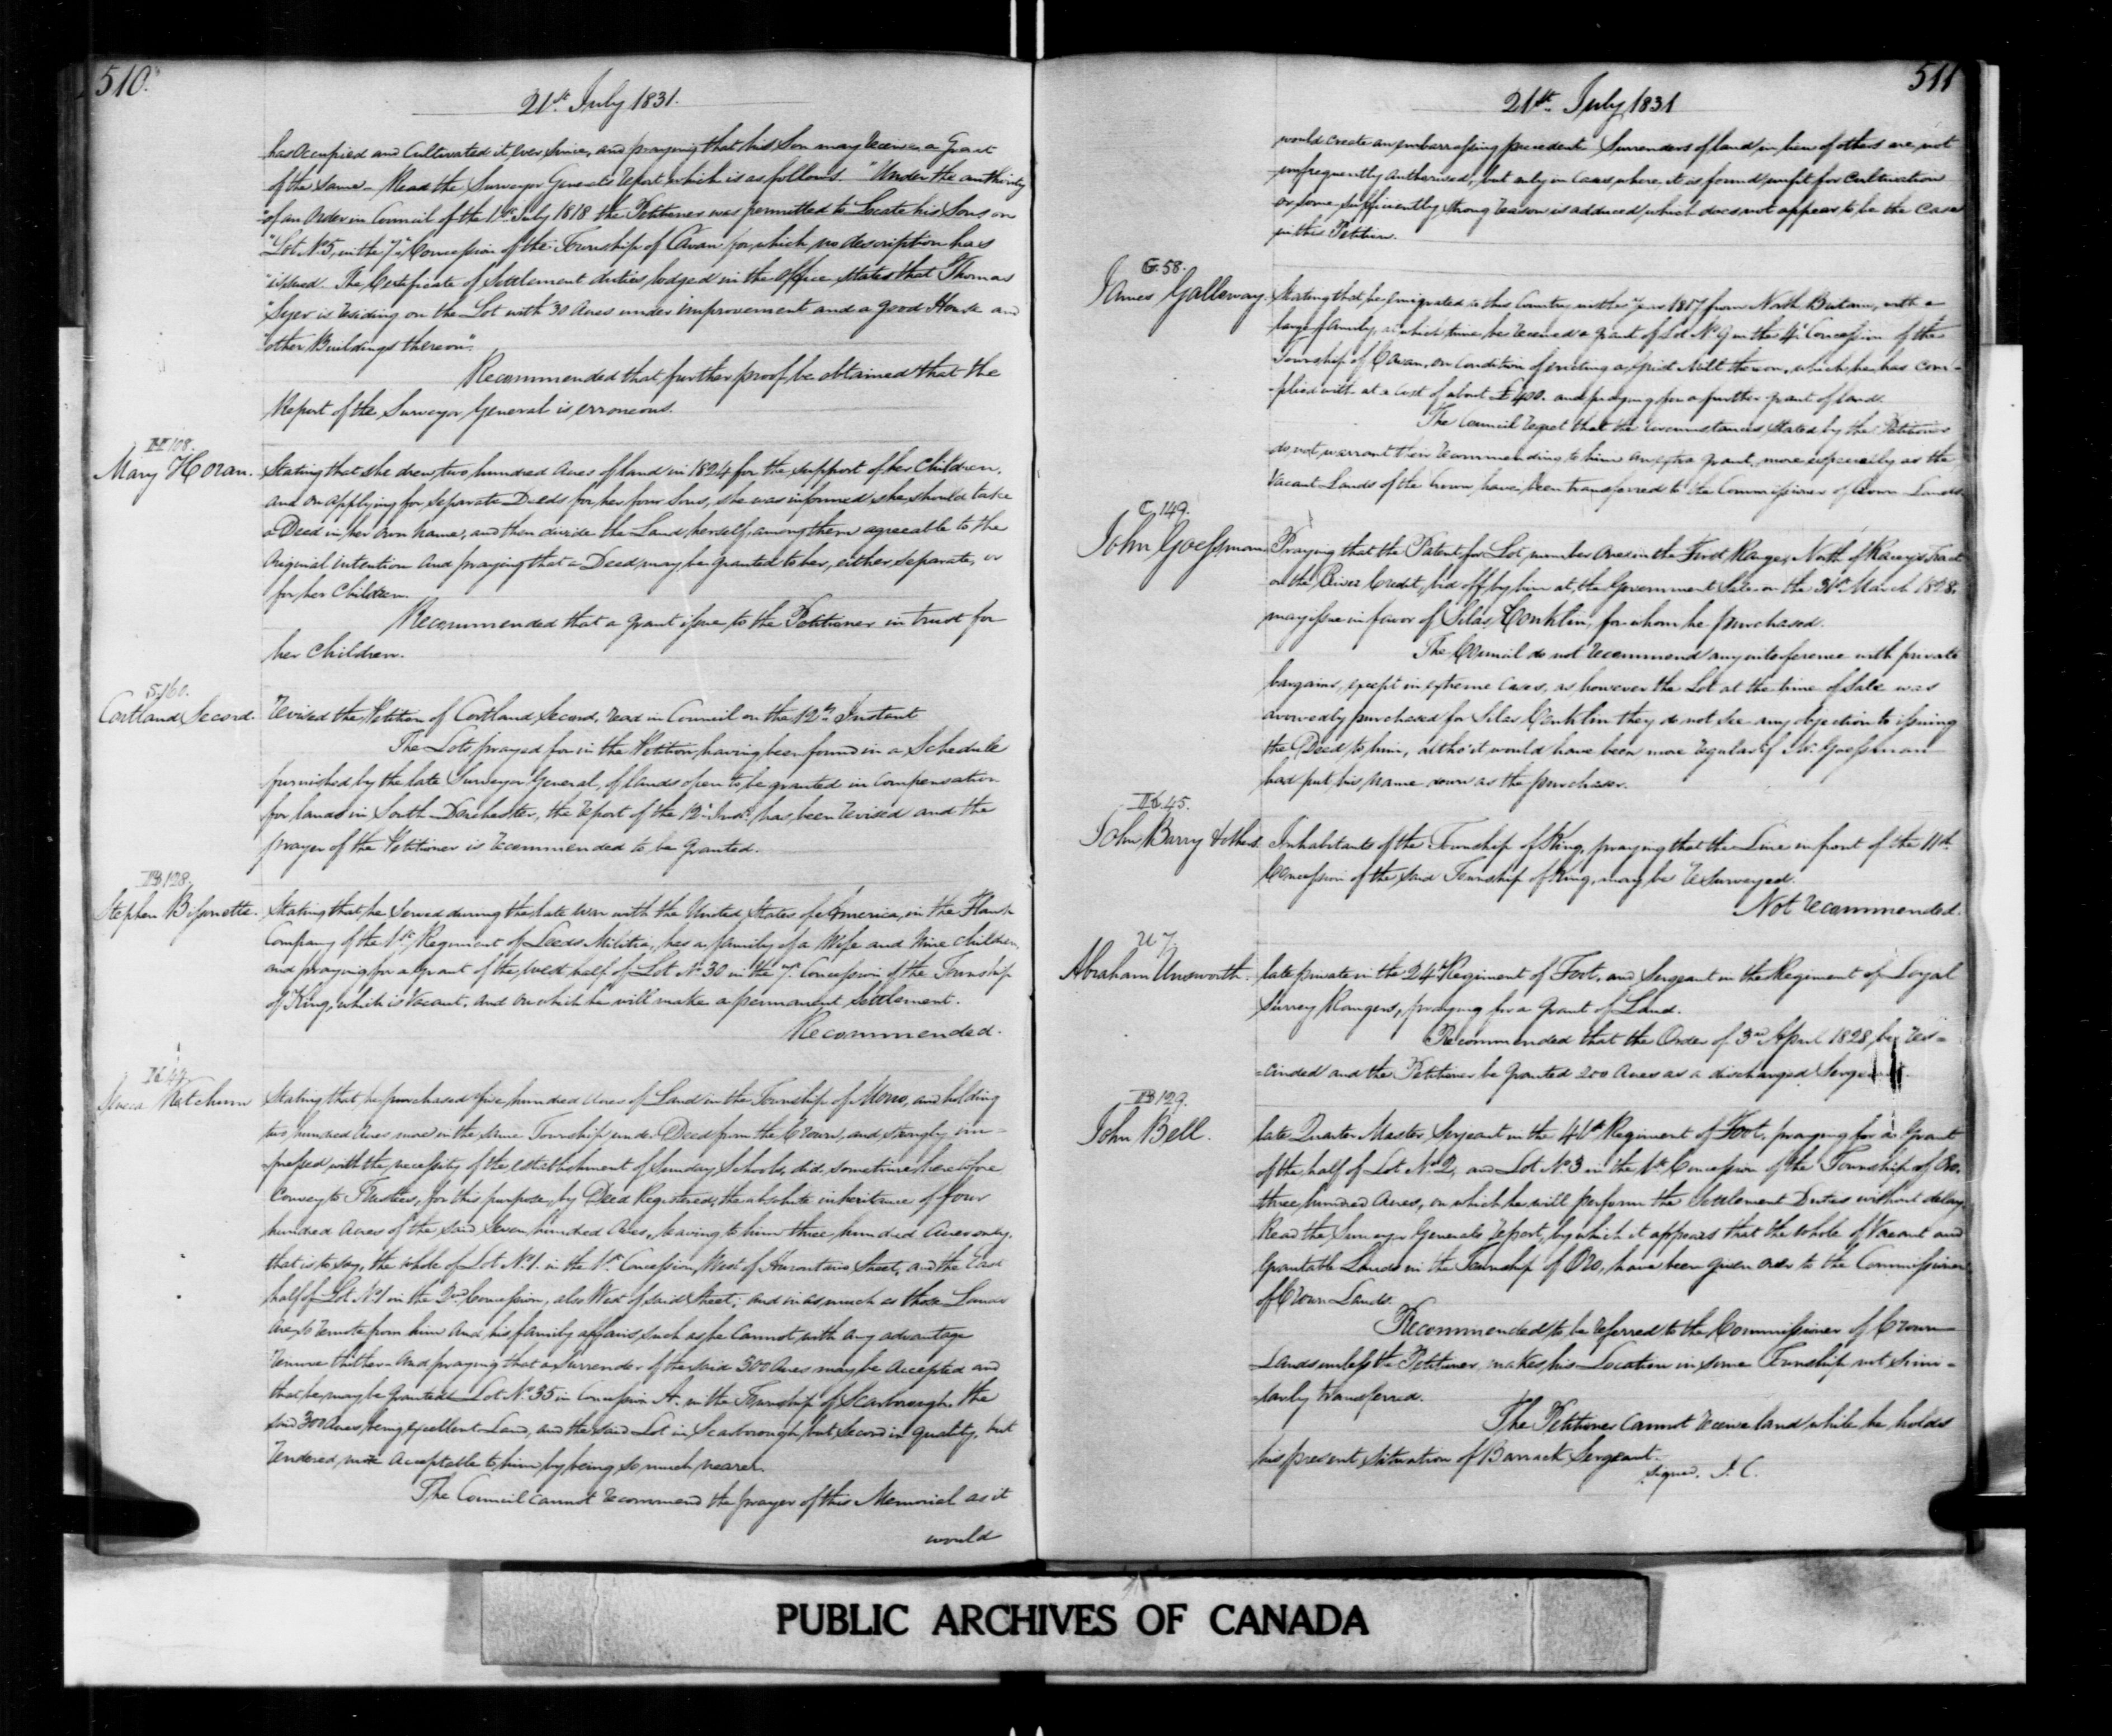 510.
21st July 1831.
has Occupied and Cultivated it, ever since, and praying that his Son may receive a Grant
of the same. Read the Surveyor General's report which is as follows. "Under the authority
"of an Order in Council of the 1st July 1818 the Petitioner was permitted to Locate his Sons on
"Lot No 5, in the 7th Concession of the Township of Cavan for which no description has
"issued. The Certificate of Settlement duties lodged in the office states that Thomas
" is residing on the Lot with 30 Acres under improvement and a good House and
"other Buildings thereon".
Recommended that further proof be obtained that the
Report of the Surveyor General is erroneous.
H 108.
Mary Horan.
Stating that she drew two hundred Acres of land in 1824 for the support of her Children,
and on applying for separate Deeds for her four Sons, she was informed she should take
a Deed in her own name, and then divide the Land herself, among them agreeable to the
Original intention And praying that a Deed may be granted to her, either separate, or
for her Children.
Recommended that a grant issue to the Petitioner in trust for
her Children.
S. 160.
Cortland Secord.
Revised the Petition of Cortland Secord, read in Council on the 12th Instant
The Lots prayed for in the Petition, having been found in a Schedule
furnished by the late Surveyor General, of lands open to be granted in Compensation
for lands in South Dorchester, the report of the 12th Inst. has been revised and the
prayer of the Petitioner is recommended to be granted.
B 128.
Stephen Bissonette.
Stating that he served during the late War with the United States of America, in the Flank
Company of the 1st Regiment of Leeds Militia, has a family of a Wife and Nine Children,
and praying for a Grant of the West half of Lot No 30 in the 7th Concession of the Township
of King, which is Vacant, and on which he will make a permanent Settlement.
Recommended.
K 44
Seneca Ketchum
Stating that, he purchased five hundred Acres of Land in the Township of Mono, and holding
two hundred Acres more in the same Township under Deed from the Crown, and strongly im-
-pressed with the necessity of the establishment of Sunday Schools, did, sometime heretofore
Convey to Trustees, for this purpose, by Deed Registered, the absolute inheritance of four
hundred Acres of the said Seven hundred Acres, leaving to him three hundred Acres only,
that is to say, the whole of Lot No 1. in the 1st Concession, West of Hurontario Street, and the East
half of Lot No 1 in the 2nd Concession, also West of said Street, and in as much as those Lands
are so remote from him and his family affairs, such as he cannot, with any advantage
remove thither. And praying that a Surrender of the said 300 Acres may be accepted and
that he may be granted Lot No 35 in Concession A. in the Township of Scarborough, the
said 300 Acres, being excellent Land, and the said Lot in Scarborough but Second in quality, but
rendered more acceptable to him by being so much nearer.
The Council cannot recommend the prayer of this Memorial as it
would
511
21st July 1831
would create an embarrassing precedent. Surrenders of land in lieu of others are not
unfrequently authorised, but only in Cases where it is found unfit for Cultivation
or some sufficiently strong reason is adduced which does not appear to be the Case
in this Petition.
G. 58.
James Galloway.
Stating that he Emigrated to this Country in the Year 1817 from North Britain, with a
large family, at which time he received a grant of Lot No 9 in the 4th Concession of the
Township of Cavan, on Condition of erecting a Grist Mill thereon, which he has com-
-plied with at a Cost of about £400. and praying for a further grant of land.
The Council regret that the circumstances stated by the Petitioner
do not warrant their recommending to him an extra grant, more especially as the
Vacant Lands of the Crown have been transferred to the Commissioner of Crown Lands.
C 149.
John Goessman
Praying that the Patent for Lot number One in the First Range, North of Racey's Tract
on the River Credit, bid off by him at the Government Sale on the 31st March 1828.
may issue in favor of Silas Conklin, for whom he purchased.
The Council do not recommend any interference with private
bargains, except in extreme Cases, as however the Lot at the time of Sale was
avowedly purchased for Silas Conklin they do not see any objection to issuing
the Deed to him, altho' it would have been more regular if Mr. Goessman
had put his name down as the purchaser.
K 45.
John Barry & others
Inhabitants of the Township of King, praying that the Line in front of the 11th
Concession of the said Township of King, may be resurveyed.
Not recommended.
U 7
Abraham Unsworth.
late private in the 24th Regiment of Foot, and Sergeant in the Regiment of Loyal
Surrey Rangers, praying for a Grant of Land.
Recommended that the Order of 3rd April 1828 be res=
=cinded and the Petitioner be granted 200 Acres as a discharged Sergeant.
B 129.
John Bell.
late Quarter Master Serjeant in the 41st Regiment of Foot, praying for a Grant
of the half of Lot No 2, and Lot No 3 in the 1st Concession of the Township of Oro,
three hundred Acres, on which he will perform the Settlement Duties without delay.
Read the Surveyor General's report, by which it appears that the whole of Vacant and
grantable Lands in the Township of Oro, have been given over to the Commissioner
of Crown Lands.
Recommended to be referred to the Commissioner of Crown
Lands unless the Petitioner makes his Location in some Township not simi=
-larly transferred.
The Petitioner cannot receive land while he holds
his present situation of Barrack Sergeant.
signed. J. C.
PUBLIC ARCHIVES OF CANADA